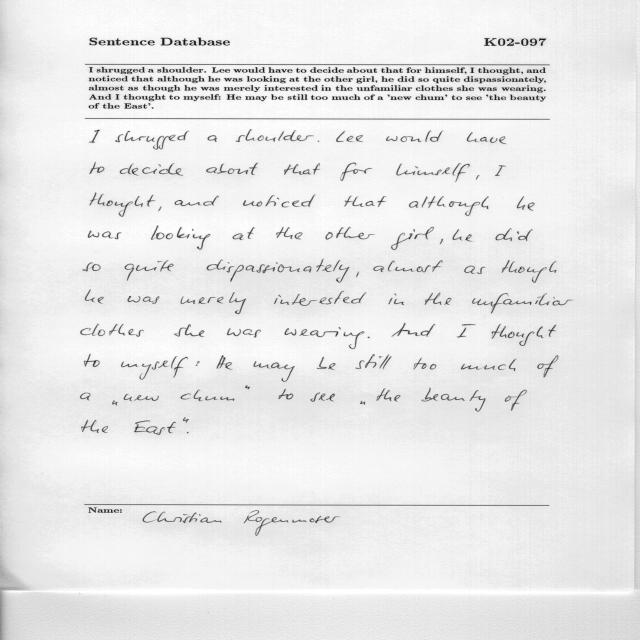 Sentence Database K02-097
I shrugged a shoulder. Lee would have to decide about that for himself, I thought, and
noticed that although he was looking at the other girl, he did so quite dispassionately,
almost as though he was merely interested in the unfamiliar clothes she was wearing.
And I thought to myself: He may be still too much of a 'new chum' to see 'the beauty
of the East'.
I shrugged a shoulder. Lee would have
to decide about that for himself, I
thought, and noticed that although he
was looking at the other girl, he did
so quite dispassionately, almost as though
he was merely interested in the unfamiliar
clothes she was wearing. And I thought
to myself: He may be still too much of
a „new chum" to see „the beauty of
the East".
Name: Christian